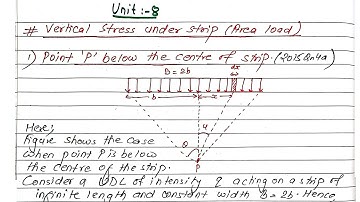 Unit:-8
# Vertical Stress under strip (Area load)
1) Point 'P' below the centre of strip. (2075 Q.n4a)
B = 2b
dx
b
x
Here;
figure shows the case
when point P is below
the centre of the strip.
θ
P
Consider a UDL of intensity q acting on a strip of
infinite length and constant width B = 2b. Hence,